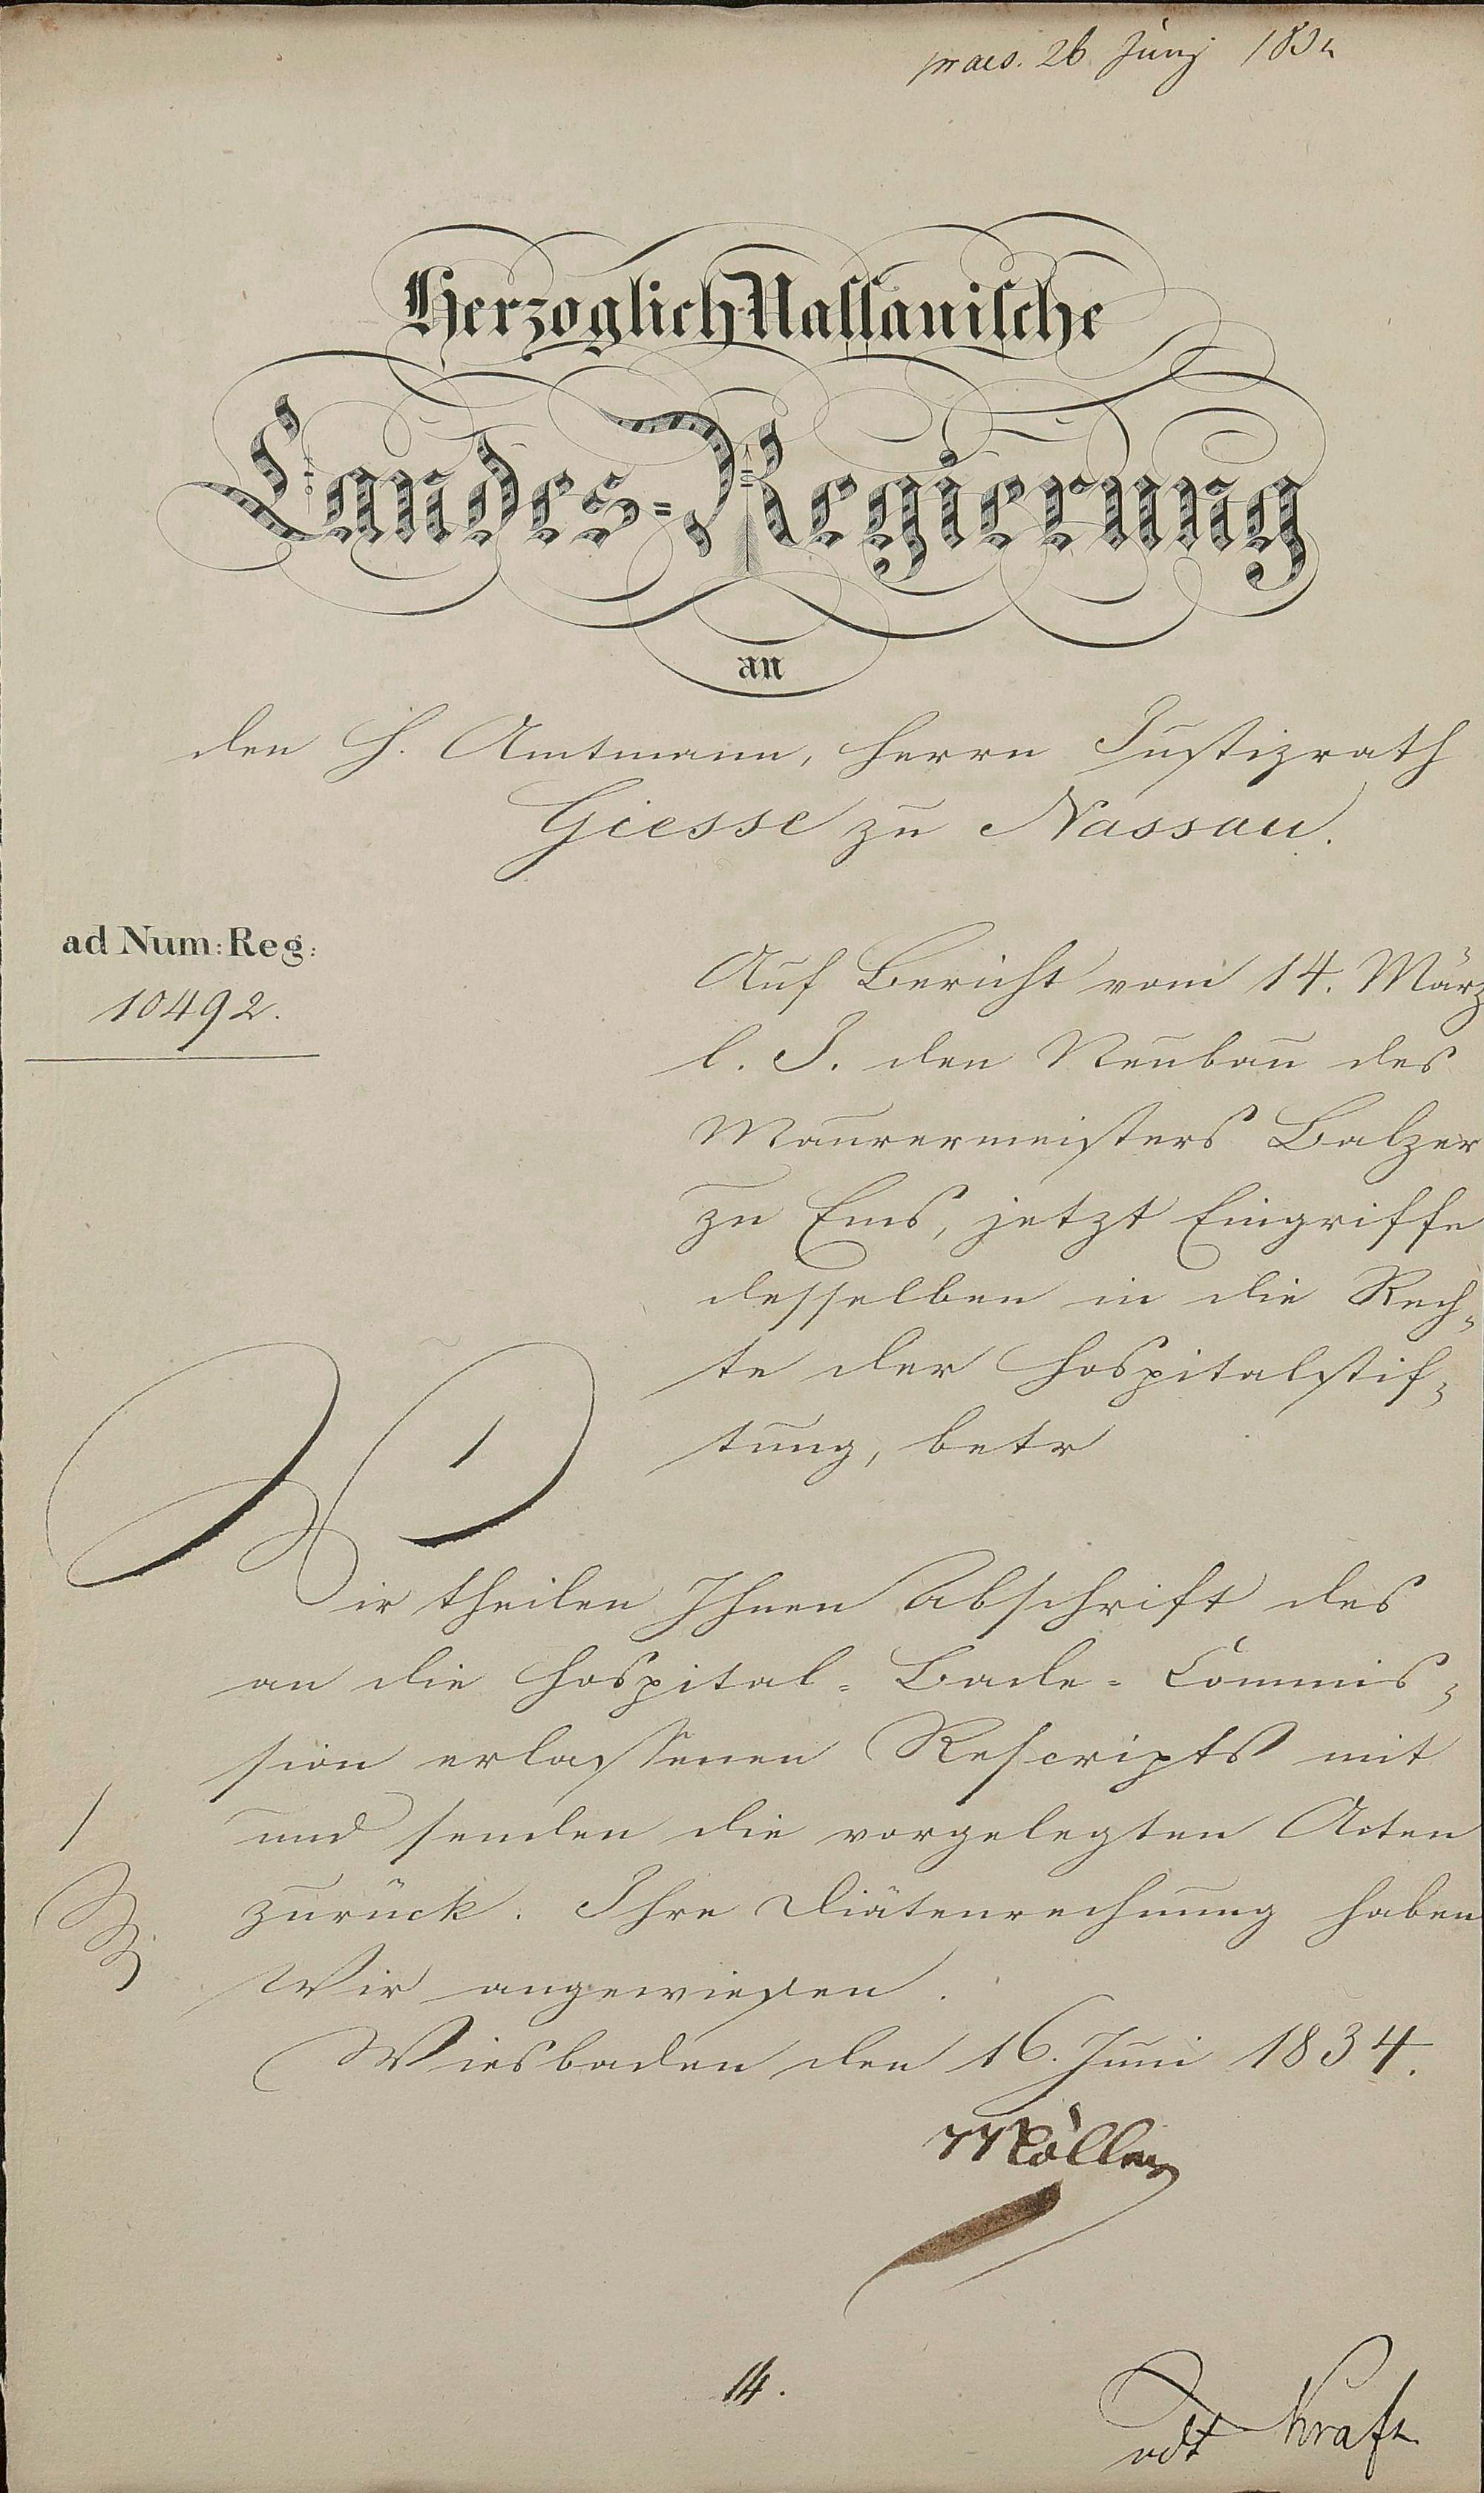 praes. 26 Juny 1834
Herzoglich Nassauische
Landes-Regierung
an
den H. Amtmann, Herrn Justizrath
Giesse zu Nassau.
ad Num: Reg:
10492.
Auf Bericht vom 14. März
l. J. den Neubau des
Maurermeisters Balzer
zu Ems, jetzt Eingriffe
desselben in die Rech-
te der Hospitalstif-
tung, betr
Wir theilen Ihnen Abschrift des
an die Hospital-Bade-Commis-
sion erlassenen Rescripts mit
und senden die vorgelegten Acten
zurück. Ihre Diätenrechnung haben
Wir angewiesen.
Wiesbaden den 16. Juni 1834.
Möller
14.
vdt Kraft